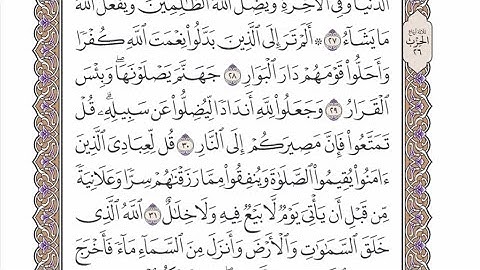 الدُّنْيَا وَفِي الْآخِرَةِ وَيُضِلُّ اللَّهُ الظَّالِمِينَ وَيَفْعَلُ اللَّهُ
مَا يَشَآءُ ٢٧ ۞ أَلَمْ تَرَ إِلَى الَّذِينَ بَدَّلُوا۟ نِعْمَتَ اللَّهِ كُفْرًا
وَأَحَلُّوا۟ قَوْمَهُمْ دَارَ الْبَوَارِ ٢٨ جَهَنَّمَ يَصْلَوْنَهَا وَبِئْسَ
الْقَرَارُ ٢٩ وَجَعَلُوا۟ لِلَّهِ أَندَادًا لِّيُضِلُّوا۟ عَن سَبِيلِهِۦ قُلْ
تَمَتَّعُوا۟ فَإِنَّ مَصِيرَكُمْ إِلَى النَّارِ ٣٠ قُل لِّعِبَادِيَ الَّذِينَ
ءَامَنُوا۟ يُقِيمُوا۟ الصَّلَوٰةَ وَيُنفِقُوا۟ مِمَّا رَزَقْنَٰهُمْ سِرًّا وَعَلَانِيَةً
مِّن قَبْلِ أَن يَأْتِيَ يَوْمٌ لَّا بَيْعٌ فِيهِ وَلَا خِلَٰلٌ ٣١ اللَّهُ الَّذِي
خَلَقَ السَّمَٰوَٰتِ وَالْأَرْضَ وَأَنزَلَ مِنَ السَّمَآءِ مَآءً فَأَخْرَجَ